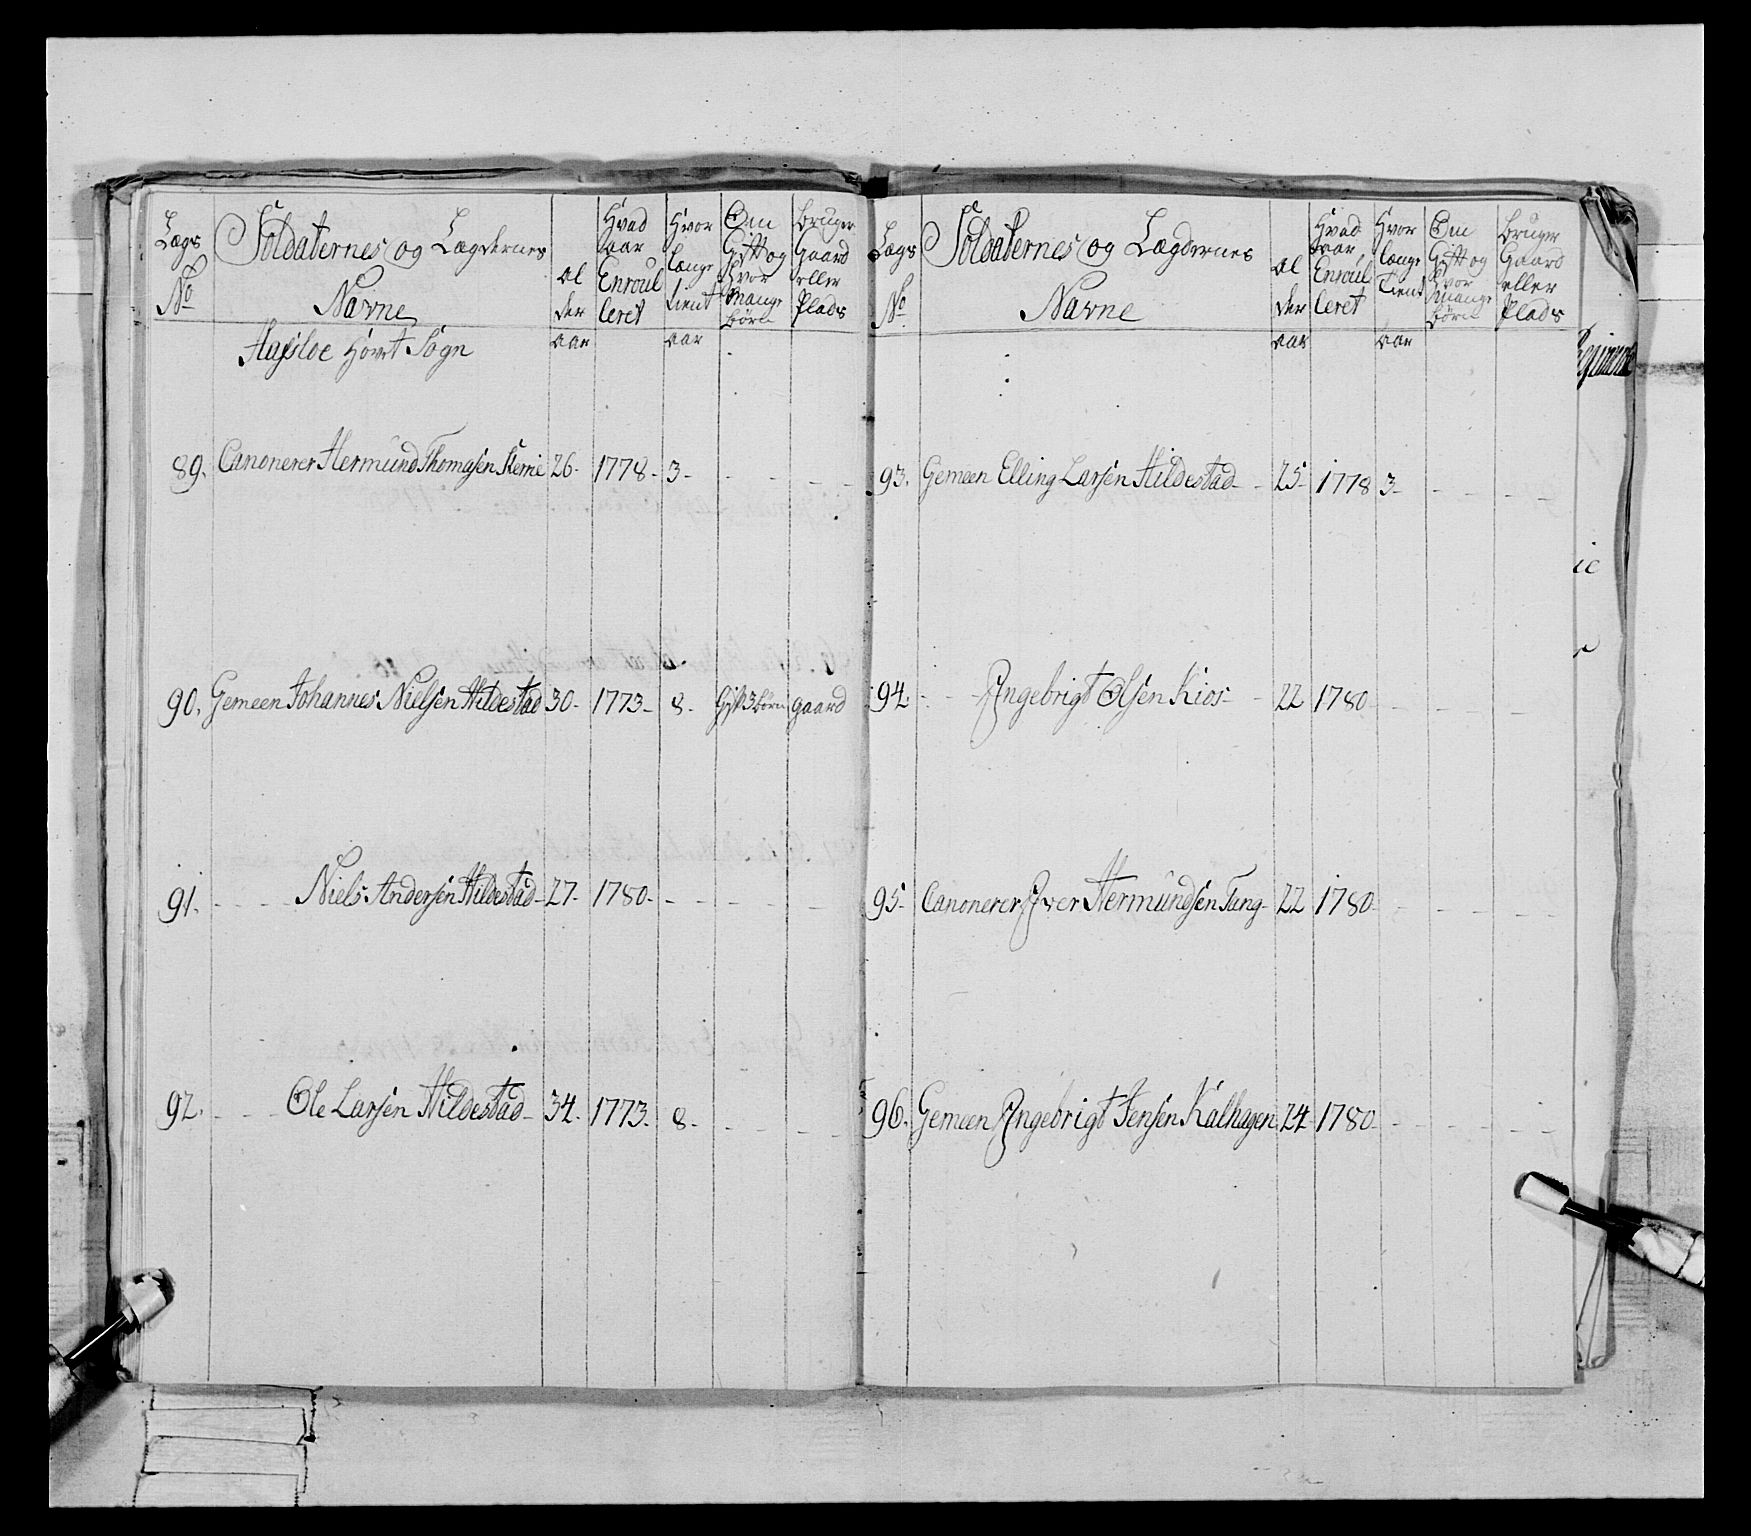 Lægs No
Soldaternes og Lægdernes Navne
Al der
Hvad aar Enroul leret
Hvor længe tient
Om Gift og Hvor mange børn
bruger Gaard eller Plads
Hafsloe Hovet Sogn
aar
aar
89. Canonerer Hermund Thomasen Kerrie 26- 1778- 3-
90. Gemeen Johannes Nielsen Hildestad 30- 1773- 8- Gift 3 børn gaard
91. Niels Andersen Hildestad- 27- 1780-
92. Ole Larsen Hildestad- 34- 1773- 8-
Lægs No
Soldaternes og Lægdernes Navne
Al der
Hvad aar Enroul leret
Hvor længe tient
Om Gift og Hvor mange børn
bruger Gaard eller Plads
aar
aar
93. Gemeen Elling Larsen Hildestad- 25- 1778 3-
94. Ingebrigt Olsen Kios- 22 1780-
95- Canonerer Iver Hermundsen Tang- 22 1780-
96. Gemeen Ingebrigt Jensen Kalhagen 24 1780-